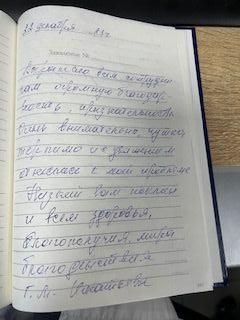 22 декабря 23г.
Заявление №
всем сотрудни-
кам огромную благодар-
ность, признательность
Очень внимательно, чутко,
терпимо и с уважением
отнеслась к моей проблеме
Низкий вам поклон
и всем здоровья,
благополучия, мира
благоденствия
Г. М.